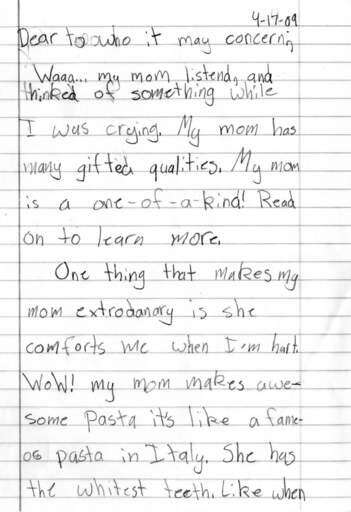 4-17-09
Dear to who it may concern,
Waaa... my mom listend, and
thinked of something while
I was crying. My mom has
many gifted qualities. My mom
is a one-of-a-kind! Read
on to learn more.
One thing that makes my
mom extrodanary is she
comforts me when I'm hurt.
WoW! my mom makes awe-
some Pasta it's like a fame-
os pasta in Italy. She has
the whitest teeth. Like when